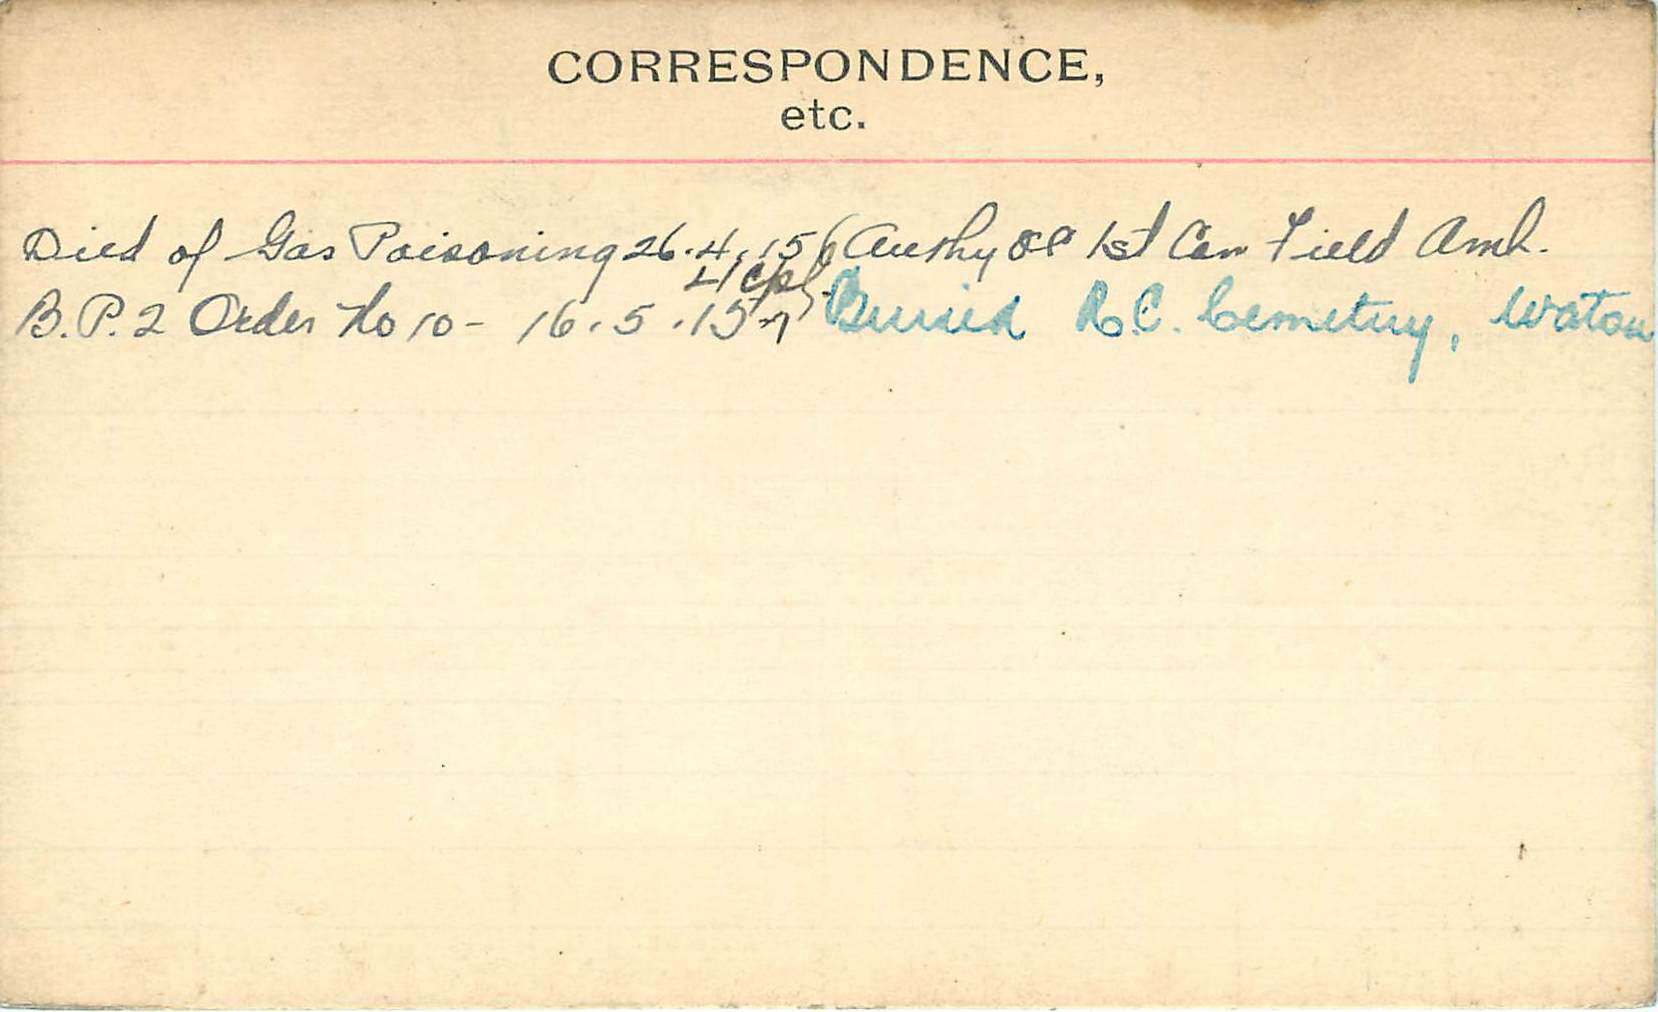 CORRESPONDENCE,
etc.
Died of Gas Poisoning 26.4.15 (Authy OC 1st Can Field Amb.
L/Cpl.
B.P.2 Order No 10 - 16.5.15 Buried R.C. Cemetery, Watou